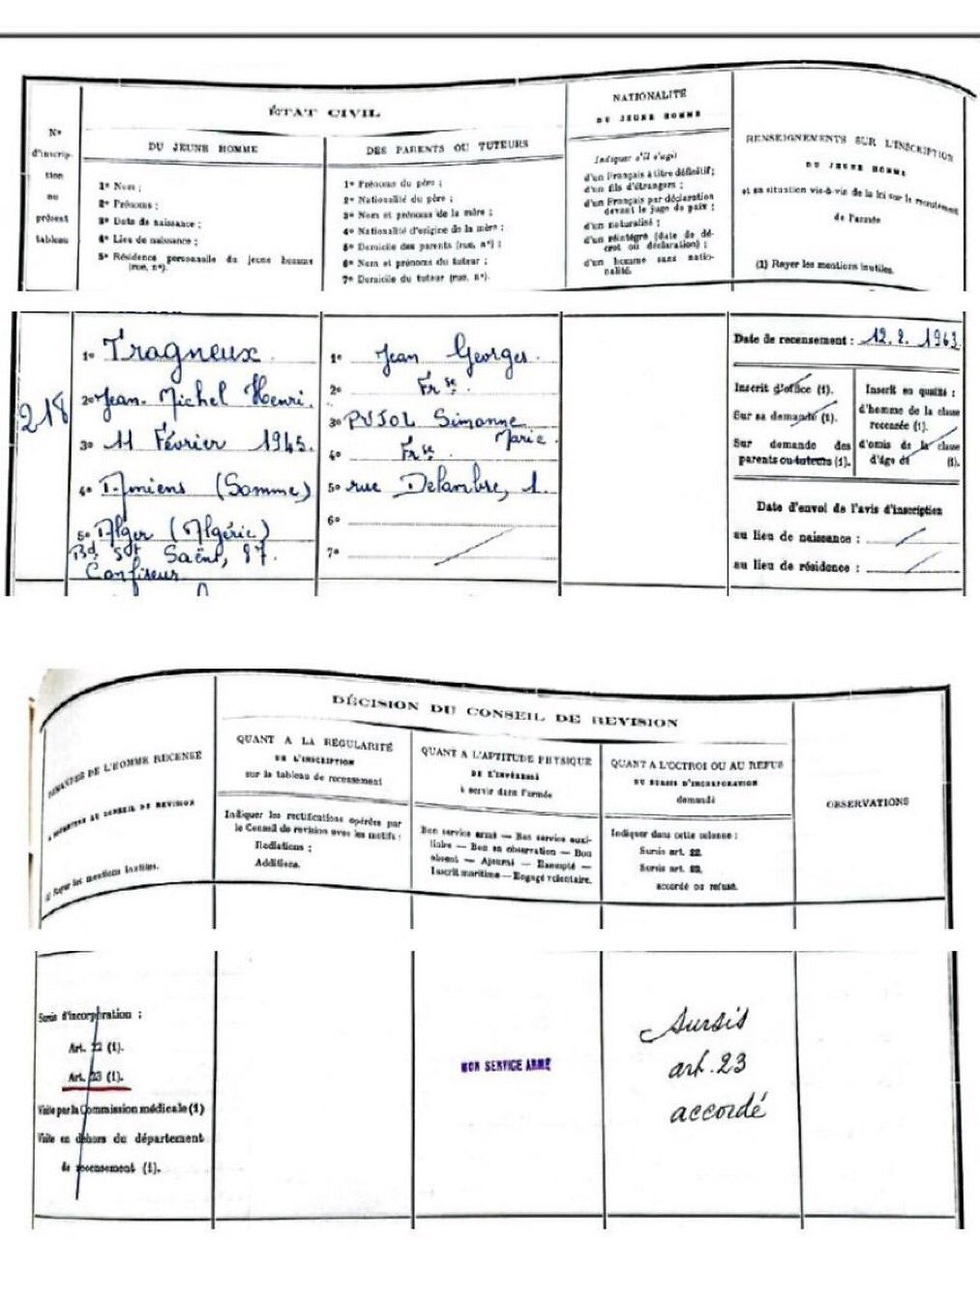 N°
d'inscrip-
tion
au
présent
tableau
ÉTAT CIVIL
DU JEUNE HOMME
1° Nom ;
2° Prénoms ;
3° Date de naissance ;
4° Lieu de naissance ;
5° Résidence personnelle du jeune homme
(rue, n°).
DES PARENTS OU TUTEURS
1° Prénoms du père ;
2° Nationalité du père ;
3° Nom et prénoms de la mère ;
4° Nationalité d'origine de la mère ;
5° Domicile des parents (rue, n°) ;
6° Nom et prénoms du tuteur ;
7° Domicile du tuteur (rue, n°).
NATIONALITÉ
DU JEUNE HOMME
Indiquer s'il s'agit
d'un Français à titre définitif ;
d'un fils d'étrangers ;
d'un Français par déclaration
devant le juge de paix ;
d'un naturalisé ;
d'un réintégré (date de dé-
cret ou déclaration) ;
d'un homme sans natio-
nalité.
RENSEIGNEMENTS SUR L'INSCRIPTION
DU JEUNE HOMME
et sa situation vis-à-vis de la loi sur le recrutement
de l'armée
(1) Rayer les mentions inutiles.
218
1° Tragneux
2° Jean-Michel Henri.
3° 11 Février 1945.
4° Amiens (Somme)
5° Alger (Algérie)
Bd. Saëns, 87.
Confiseur
1° Jean Georges.
2° Frse
3° PUJOL Simonne
Marie
4° Frse.
5° rue Delambre, 1.
6°
7°
Date de recensement : 12.2.1963.
Inscrit d'office (1).
Sur sa demande (1).
Sur demande des
parents ou tuteurs (1).
Inscrit en qualité :
d'homme de la classe
recensée (1).
d'omis de la classe
d'âge de (1).
Date d'envoi de l'avis d'inscription
au lieu de naissance :
au lieu de résidence :
DEMANDES DE L'HOMME RECENSÉ
A PRÉSENTER AU CONSEIL DE REVISION
(1) Rayer les mentions inutiles.
DÉCISION DU CONSEIL DE REVISION
QUANT A LA RÉGULARITÉ
DE L'INSCRIPTION
sur la tableau de recensement
Indiquer les rectifications opérées par
le Conseil de revision avec les motifs :
Radiations ;
Additions.
QUANT A L'APTITUDE PHYSIQUE
DE L'INTÉRESSÉ
à servir dans l'armée
Bon service armé — Bon service auxi-
liaire — Bon en observation — Bon
absent — Ajourné — Exempté —
Inscrit maritime — Engagé volontaire.
QUANT A L'OCTROI OU AU REFUS
DU SURSIS D'INCORPORATION
demandé
Indiquer dans cette colonne :
Sursis art. 22.
Sursis art. 23.
accordé ou refusé.
OBSERVATIONS
Sursis d'incorporation :
Art. 22 (1).
Art. 23 (1).
Visite par la Commission médicale (1)
Visite en dehors du département
de recensement (1).
BON SERVICE ARMÉ
Sursis
art. 23
accordé